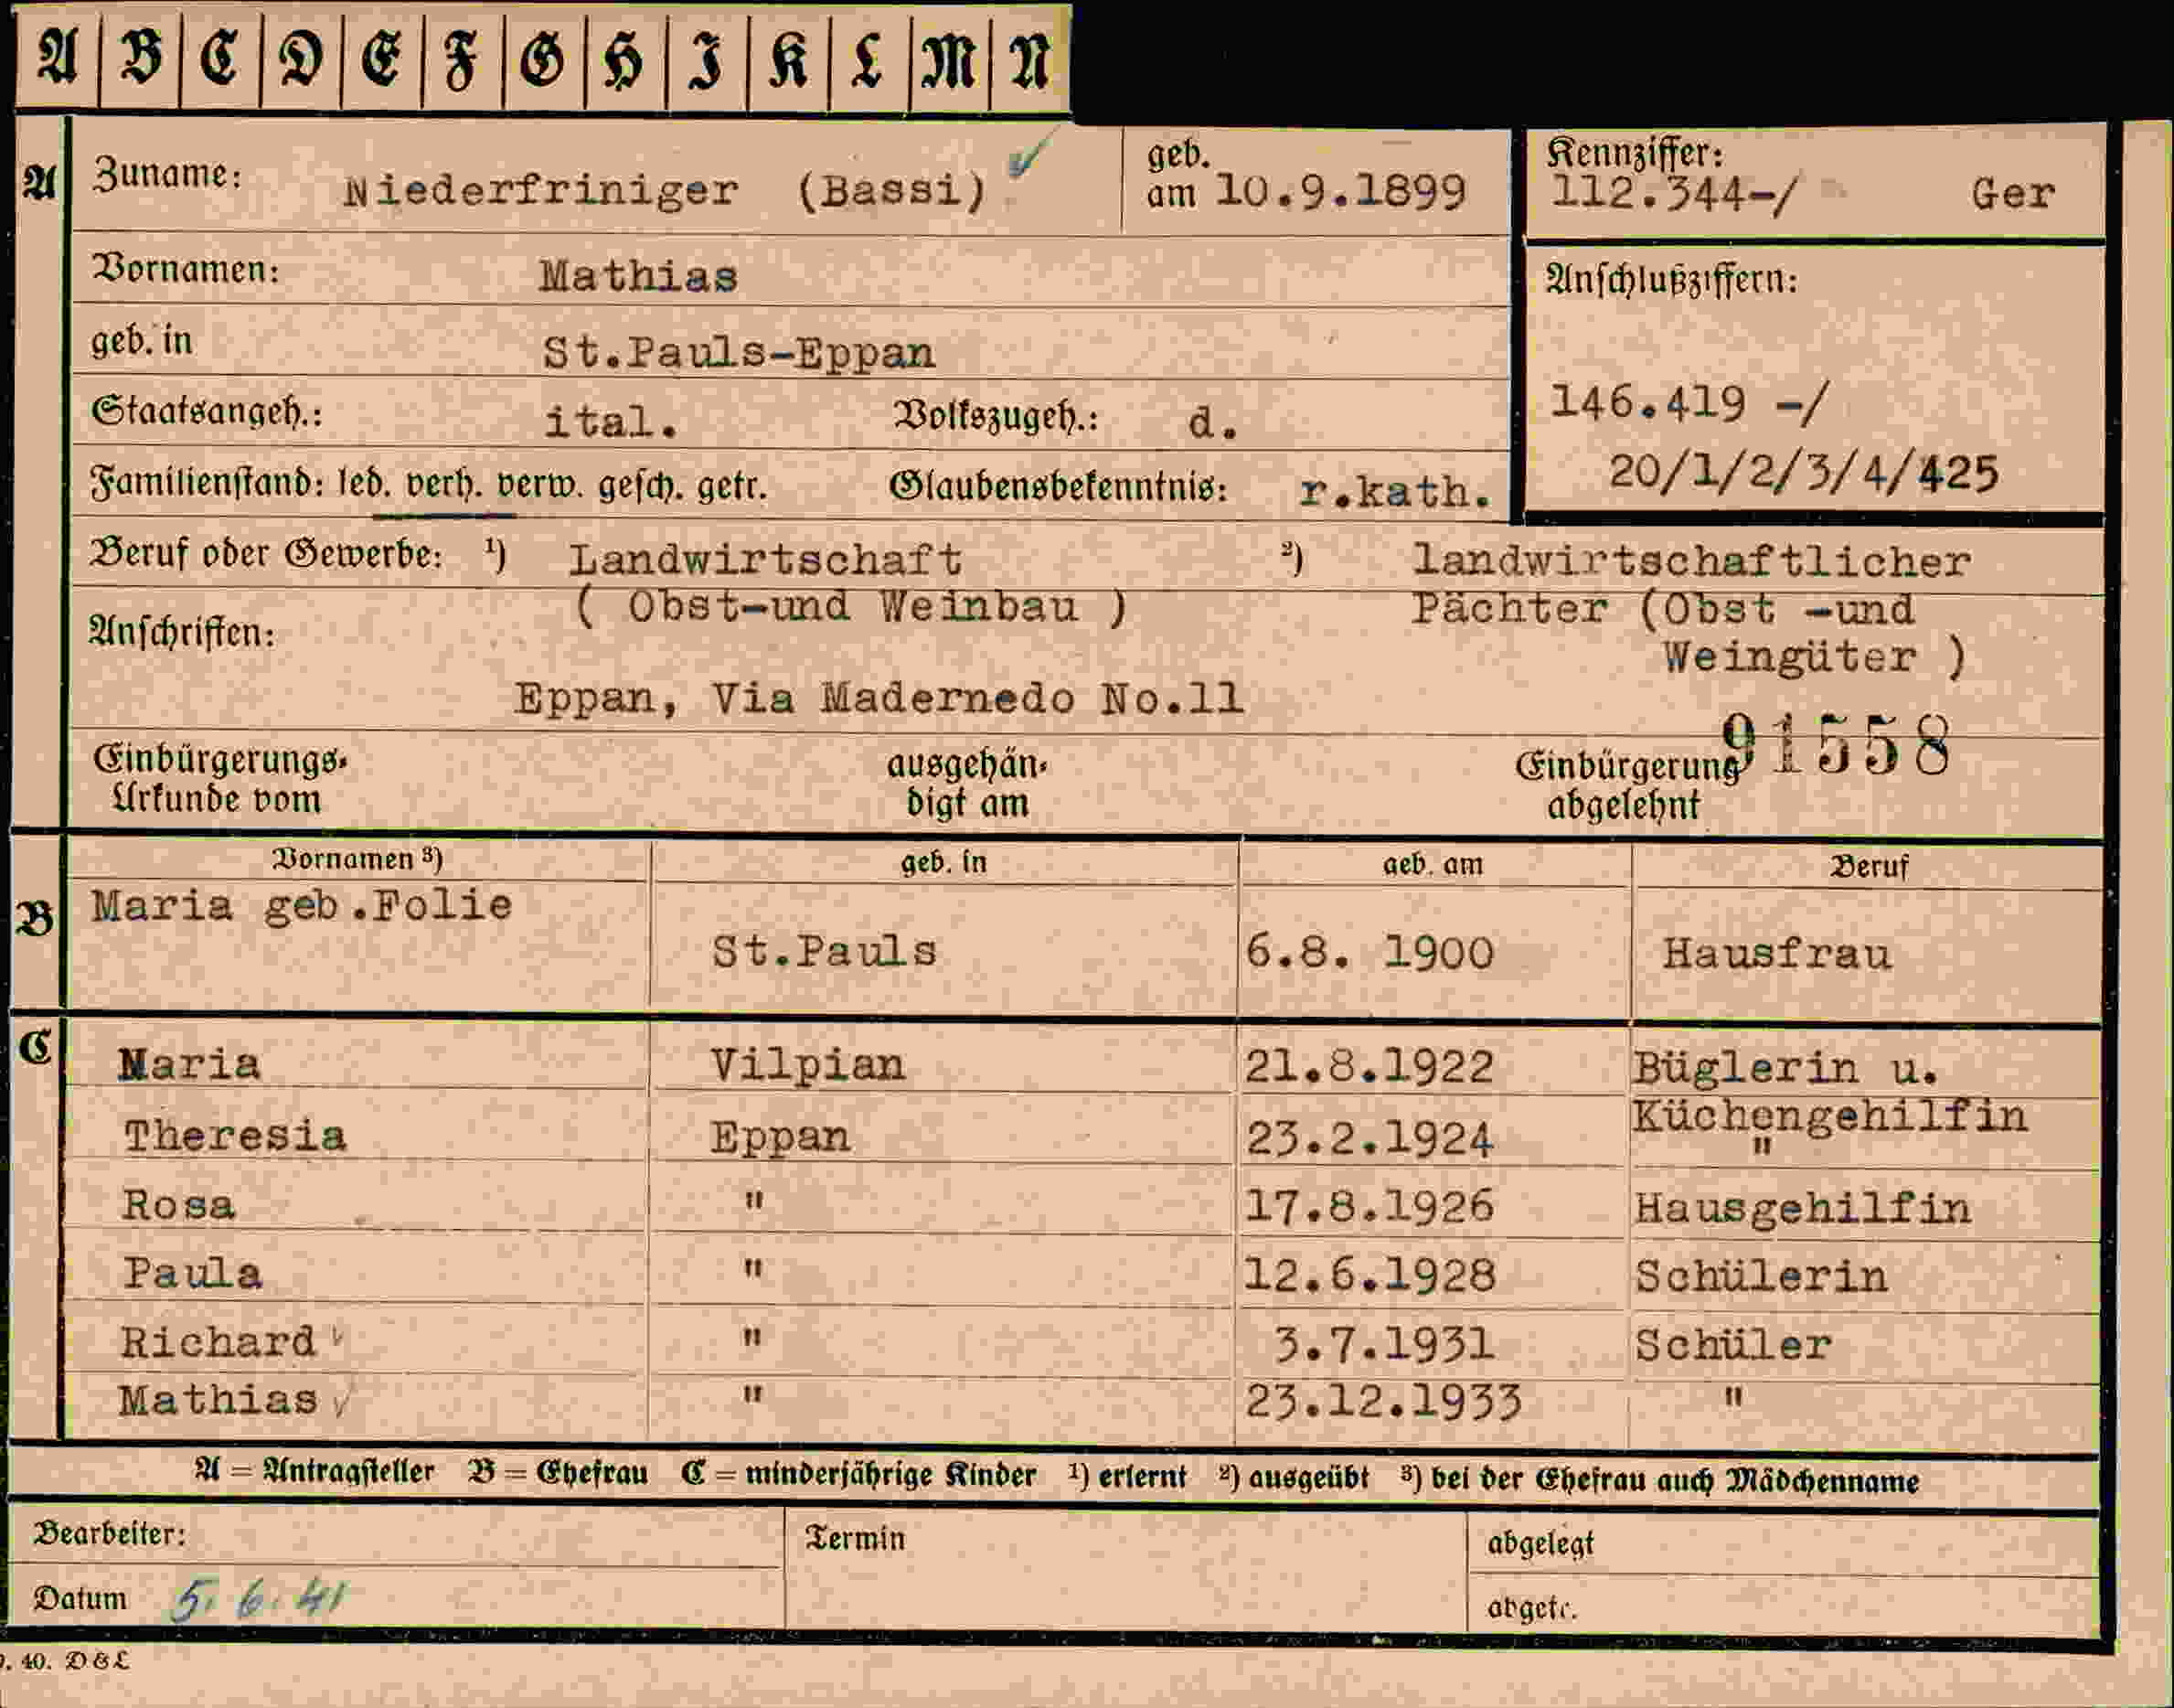 A B C D E F G H I K L M N
A Zuname: Niederfriniger (Bassi) geb. am 10.9.1899
Kennziffer: 112.344-/ Ger
Vornamen: Mathias
Anschlußziffern:
geb. in St.Pauls-Eppan
Staatsangeh.: ital. Volkszugeh.: d.
146.419 -/
Familienstand: led. verh. verw. gesch. getr. Glaubensbekenntnis: r.kath.
20/1/2/3/4/425
Beruf oder Gewerbe: ¹) Landwirtschaft ²) landwirtschaftlicher
( Obst-und Weinbau ) Pächter (Obst -und
Anschriften: Weingüter )
Eppan, Via Madernedo No.11
91558
Einbürgerungs- ausgehän- Einbürgerung
Urkunde vom digt am abgelehnt
Vornamen ³) geb. in geb. am Beruf
B Maria geb.Folie
St.Pauls 6.8. 1900 Hausfrau
C Maria Vilpian 21.8.1922 Büglerin u.
Küchengehilfin
Theresia Eppan 23.2.1924 "
Rosa " 17.8.1926 Hausgehilfin
Paula " 12.6.1928 Schülerin
Richard " 3.7.1931 Schüler
Mathias " 23.12.1933 "
A = Antragsteller B = Ehefrau C = minderjährige Kinder ¹) erlernt ²) ausgeübt ³) bei der Ehefrau auch Mädchenname
Bearbeiter: Termin abgelegt
Datum 5. 6. 41 abgetr.
. 40. D & L